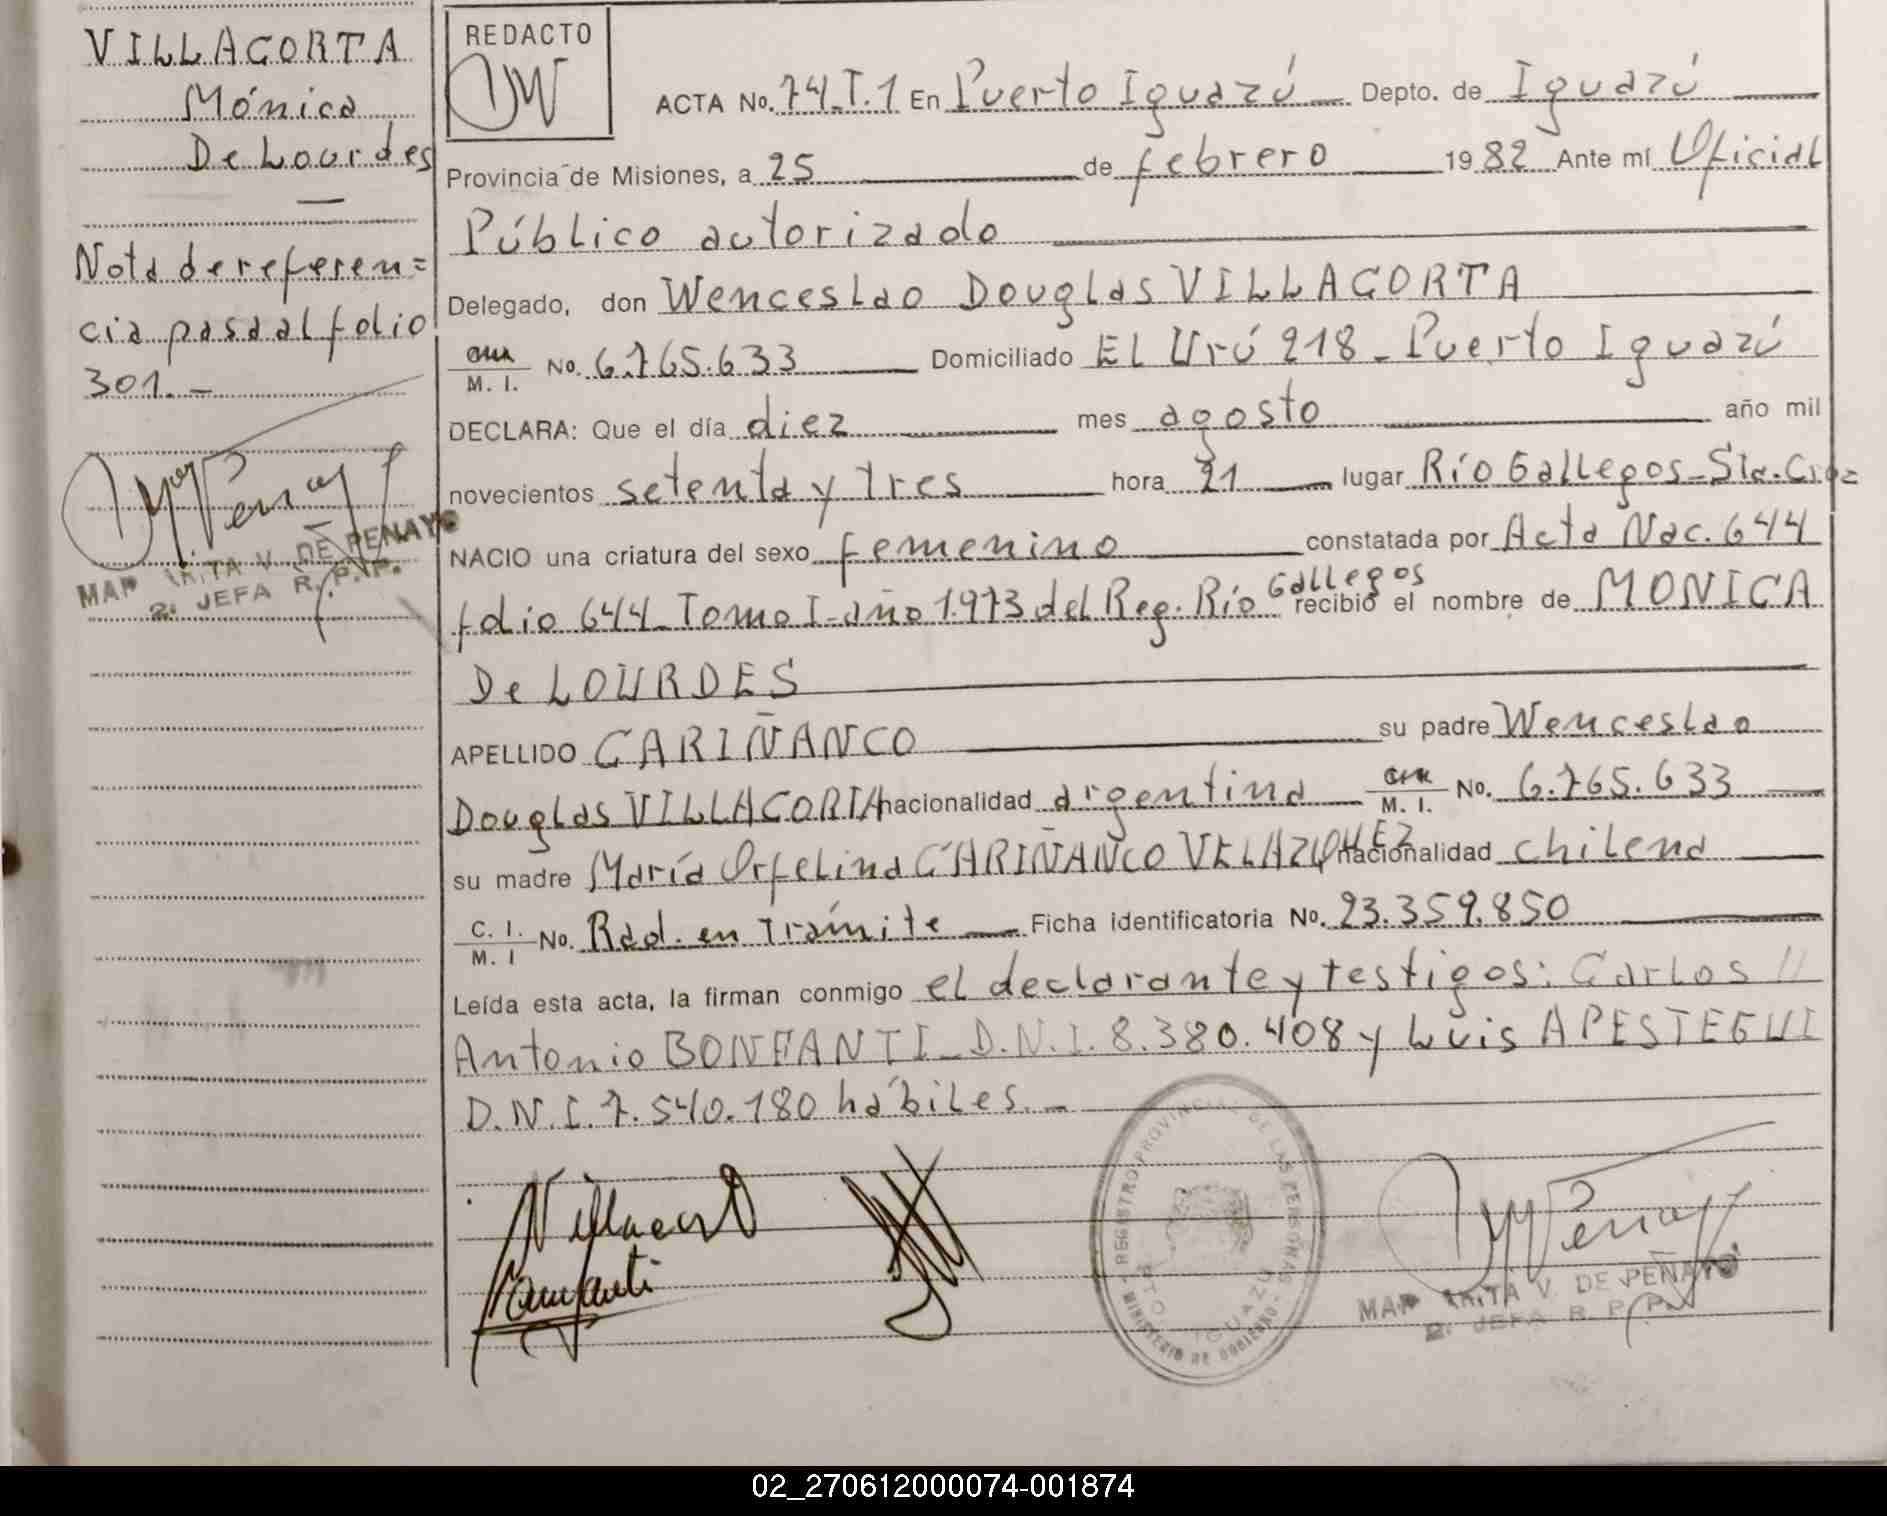 VILLACORTA
Mónica
De Lourdes
—
Nota de referen=
cia pasa al folio
301.-
MARGARITA V. DE PENAYO
2ª JEFA R. P. P.
REDACTO
ACTA No. 74-T.1 En Puerto Iguazú Depto. de Iguazú
Provincia de Misiones, a 25 de febrero 1982 Ante mí Oficial
Público autorizado
Delegado, don Wenceslao Douglas VILLACORTA
M. I. No. 6.765.633 Domiciliado EL Urú 218 - Puerto Iguazú
DECLARA: Que el día diez mes agosto año mil
novecientos setenta y tres hora 21 lugar Río Gallegos - Sta. Cruz
NACIO una criatura del sexo femenino constatada por Acta Nac. 644
folio 644 - Tomo I - año 1.973 del Reg. Río Gallegos recibió el nombre de MONICA
De LOURDES
APELLIDO CARIÑANCO su padre Wenceslao
Douglas VILLACORTA nacionalidad argentina M. I. No. 6.765.633
su madre María Orfelina CARIÑANCO VELAZQUEZ nacionalidad chilena
C. I. M. I No. Rad. en Trámite Ficha identificatoria No. 23.359.850
Leída esta acta, la firman conmigo el declarante y testigos: Carlos //
Antonio BONFANTI - D.N.I. 8.380.408 y Luis APESTEGUI
D.N.I. 7.540.180 hábiles.-
Villacorta
Bonfanti
REGISTRO PROVINCIAL DE LAS PERSONAS
MINISTERIO DE GOBIERNO
DTO. IGUAZU
MARGARITA V. DE PENAYO
2ª JEFA R. P. P.
02_270612000074-001874